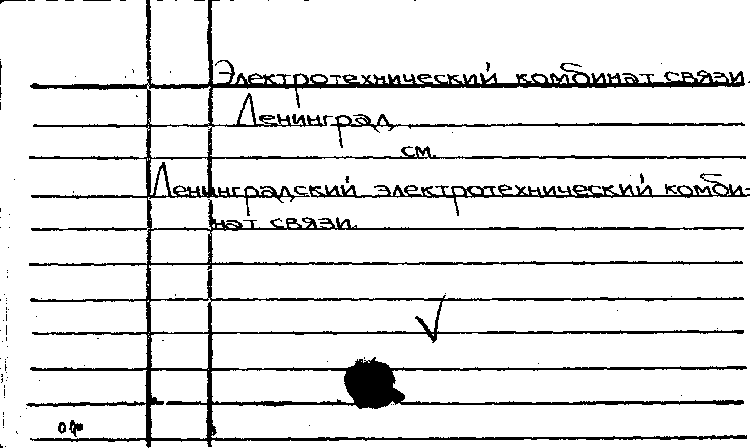 Электротехнический комбинат связи.
Ленинград,
см.
Ленинградский электротехнический комби-
нат связи.